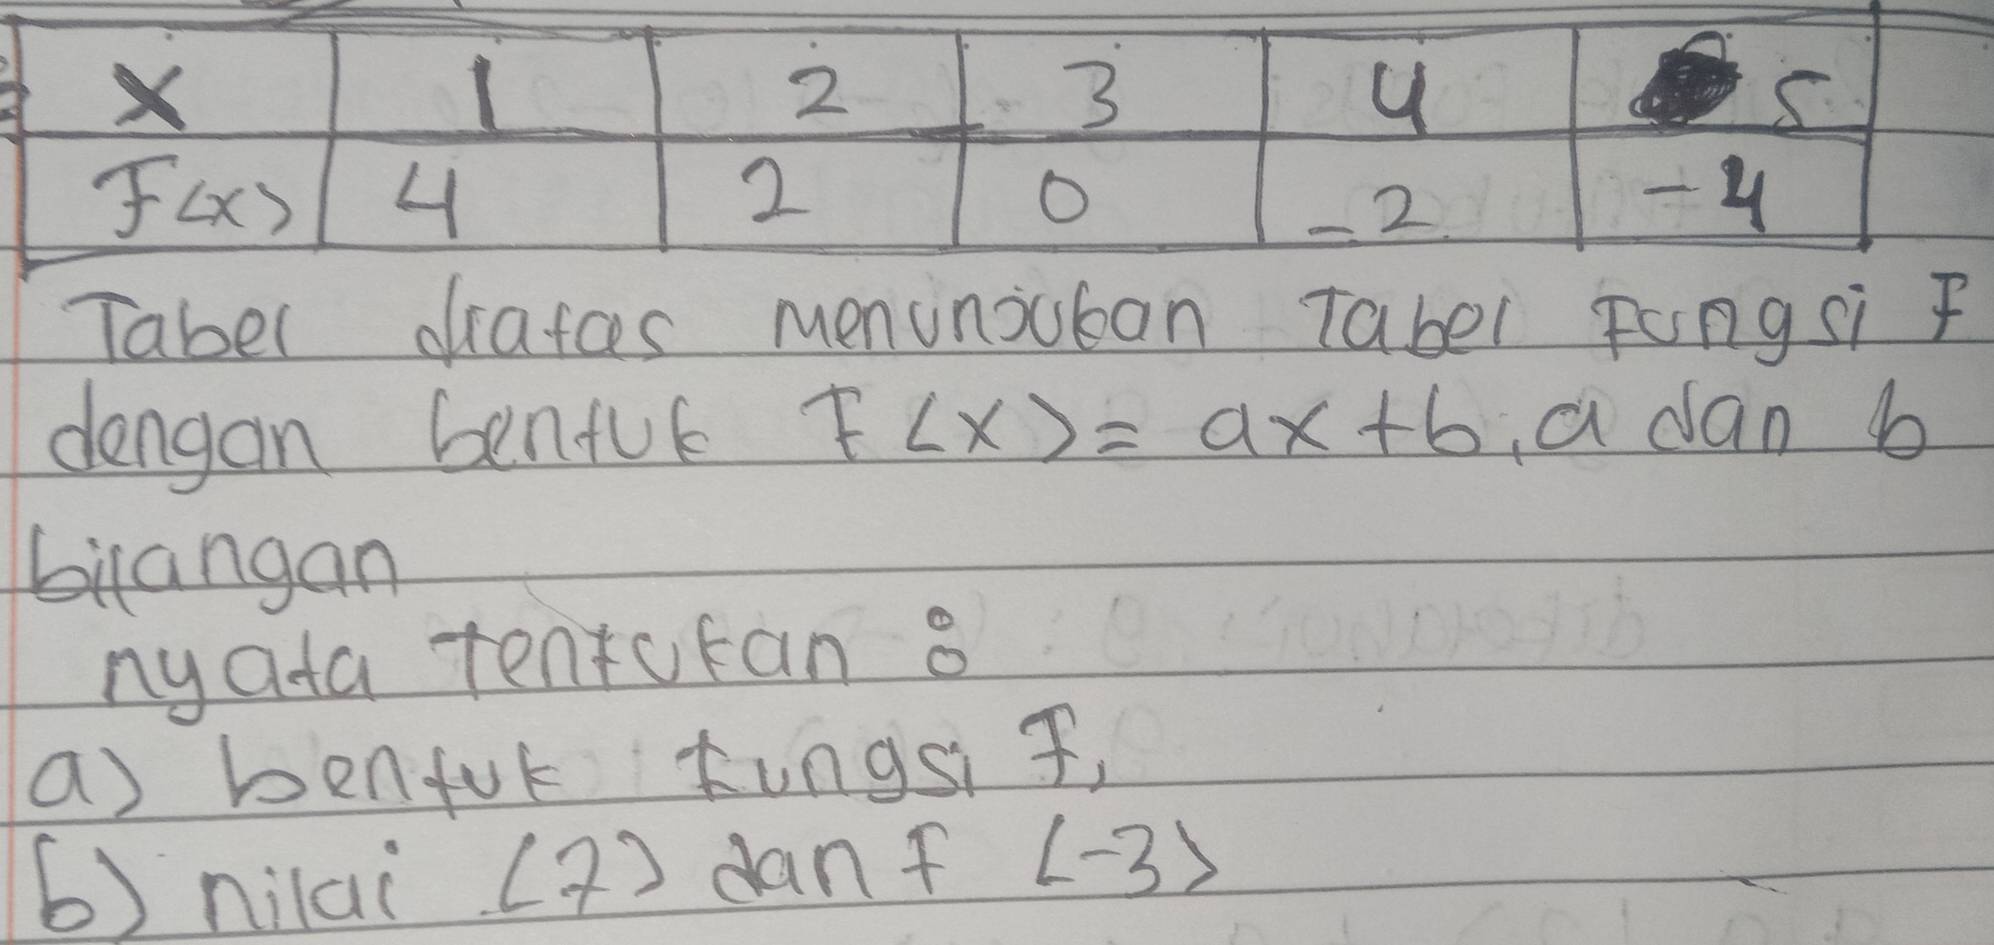 x 1 2 3 4 5
F<x> 4 2 0 -2 -4
Tabel diatas menunjukan Tabel Fungsi F
dengan bentuk F <x> = ax + b, a dan b
bilangan
nyata tentukan :
a) bentuk fungsi F,
b) nilai <7> dan F <-3>